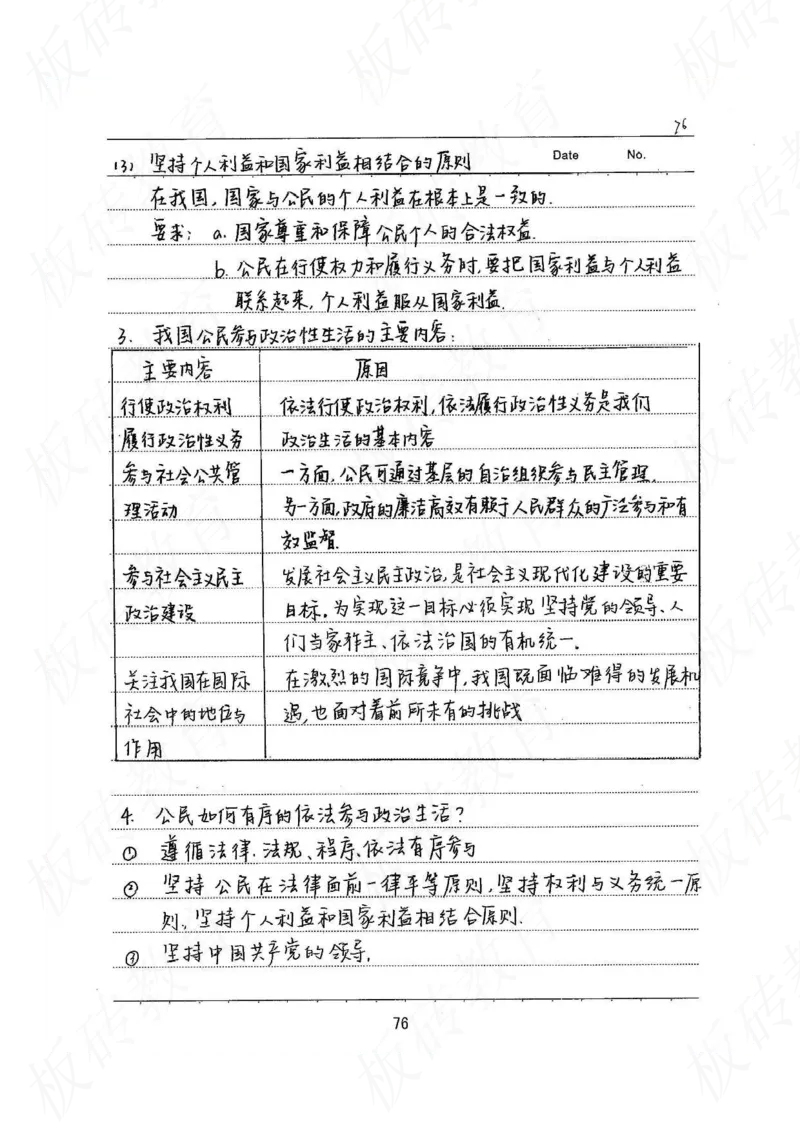 76
Date No.
(3) 坚持个人利益和国家利益相结合的原则
在我国,国家与公民的个人利益在根本上是一致的.
要求: a. 国家尊重和保障公民个人的合法权益.
b. 公民在行使权力和履行义务时,要把国家利益与个人利益
联系起来,个人利益服从国家利益.
3. 我国公民参与政治性生活的主要内容:
主要内容 原因
行使政治权利 依法行使政治权利,依法履行政治性义务是我们
履行政治性义务 政治生活的基本内容
参与社会公共管 一方面,公民可通过基层的自治组织参与民主管理.
理活动 另一方面,政府的廉洁高效有赖于人民群众的广泛参与和有
效监督.
参与社会主义民主 发展社会主义民主政治,是社会主义现代化建设的重要
政治建设 目标。为实现这一目标必须实现坚持党的领导、人
们当家作主、依法治国的有机统一。
关注我国在国际 在激烈的国际竞争中,我国既面临难得的发展机
社会中的地位与 遇,也面对着前所未有的挑战
作用
4. 公民如何有序的依法参与政治生活?
① 遵循法律.法规、程序、依法有序参与
② 坚持公民在法律面前一律平等原则,坚持权利与义务统一原
则、坚持个人利益和国家利益相结合原则.
③ 坚持中国共产党的领导.
76
板砖教育